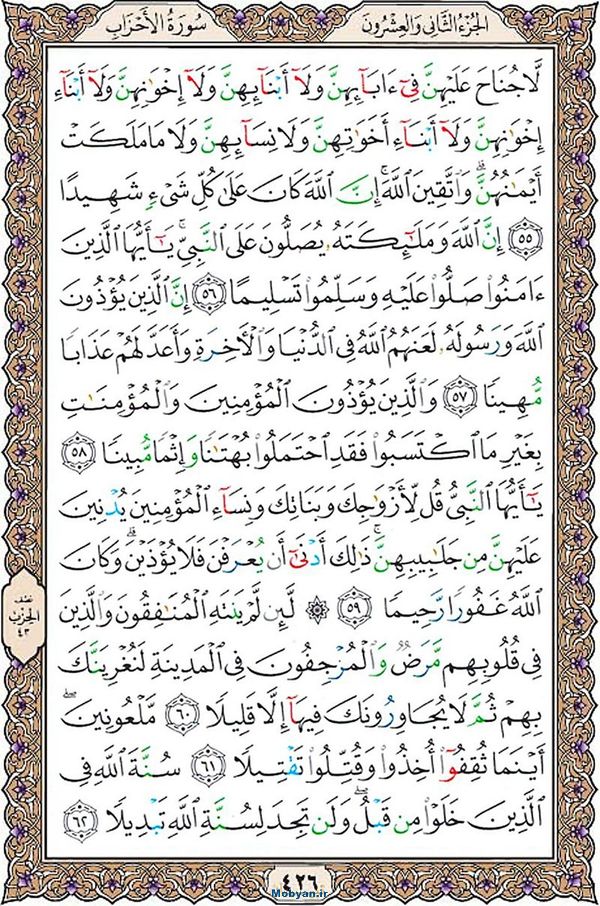 سُورَةُ الأَحْزَاب
الجُزءُ الثَّانِي وَالعِشْرُونَ
لَّا جُنَاحَ عَلَيْهِنَّ فِىٓ ءَابَآئِهِنَّ وَلَآ أَبْنَآئِهِنَّ وَلَآ إِخْوَٰنِهِنَّ وَلَآ أَبْنَآءِ
إِخْوَٰنِهِنَّ وَلَآ أَبْنَآءِ أَخَوَٰتِهِنَّ وَلَا نِسَآئِهِنَّ وَلَا مَا مَلَكَتْ
أَيْمَٰنُهُنَّ ۗ وَٱتَّقِينَ ٱللَّهَ ۚ إِنَّ ٱللَّهَ كَانَ عَلَىٰ كُلِّ شَىْءٍ شَهِيدًا
٥٥ إِنَّ ٱللَّهَ وَمَلَٰٓئِكَتَهُۥ يُصَلُّونَ عَلَى ٱلنَّبِىِّ ۚ يَٰٓأَيُّهَا ٱلَّذِينَ
ءَامَنُوا۟ صَلُّوا۟ عَلَيْهِ وَسَلِّمُوا۟ تَسْلِيمًا ٥٦ إِنَّ ٱلَّذِينَ يُؤْذُونَ
ٱللَّهَ وَرَسُولَهُۥ لَعَنَهُمُ ٱللَّهُ فِى ٱلدُّنْيَا وَٱلْأَخِرَةِ وَأَعَدَّ لَهُمْ عَذَابًا
مُّهِينًا ٥٧ وَٱلَّذِينَ يُؤْذُونَ ٱلْمُؤْمِنِينَ وَٱلْمُؤْمِنَٰتِ
بِغَيْرِ مَا ٱكْتَسَبُوا۟ فَقَدِ ٱحْتَمَلُوا۟ بُهْتَٰنًا وَإِثْمًا مُّبِينًا ٥٨
يَٰٓأَيُّهَا ٱلنَّبِىُّ قُل لِّأَزْوَٰجِكَ وَبَنَاتِكَ وَنِسَآءِ ٱلْمُؤْمِنِينَ يُدْنِينَ
عَلَيْهِنَّ مِن جَلَٰبِيبِهِنَّ ۚ ذَٰلِكَ أَدْنَىٰٓ أَن يُعْرَفْنَ فَلَا يُؤْذَيْنَ ۗ وَكَانَ
ٱللَّهُ غَفُورًا رَّحِيمًا ٥٩ ۞ لَّئِن لَّمْ يَنتَهِ ٱلْمُنَٰفِقُونَ وَٱلَّذِينَ
فِى قُلُوبِهِم مَّرَضٌ وَٱلْمُرْجِفُونَ فِى ٱلْمَدِينَةِ لَنُغْرِيَنَّكَ
بِهِمْ ثُمَّ لَا يُجَاوِرُونَكَ فِيهَآ إِلَّا قَلِيلًا ٦٠ مَّلْعُونِينَ ۖ
أَيْنَمَا ثُقِفُوٓا۟ أُخِذُوا۟ وَقُتِّلُوا۟ تَقْتِيلًا ٦١ سُنَّةَ ٱللَّهِ فِى
ٱلَّذِينَ خَلَوْا۟ مِن قَبْلُ ۖ وَلَن تَجِدَ لِسُنَّةِ ٱللَّهِ تَبْدِيلًا ٦٢
الحِزْب
٤٣
٤٢٦
Mobyan.ir